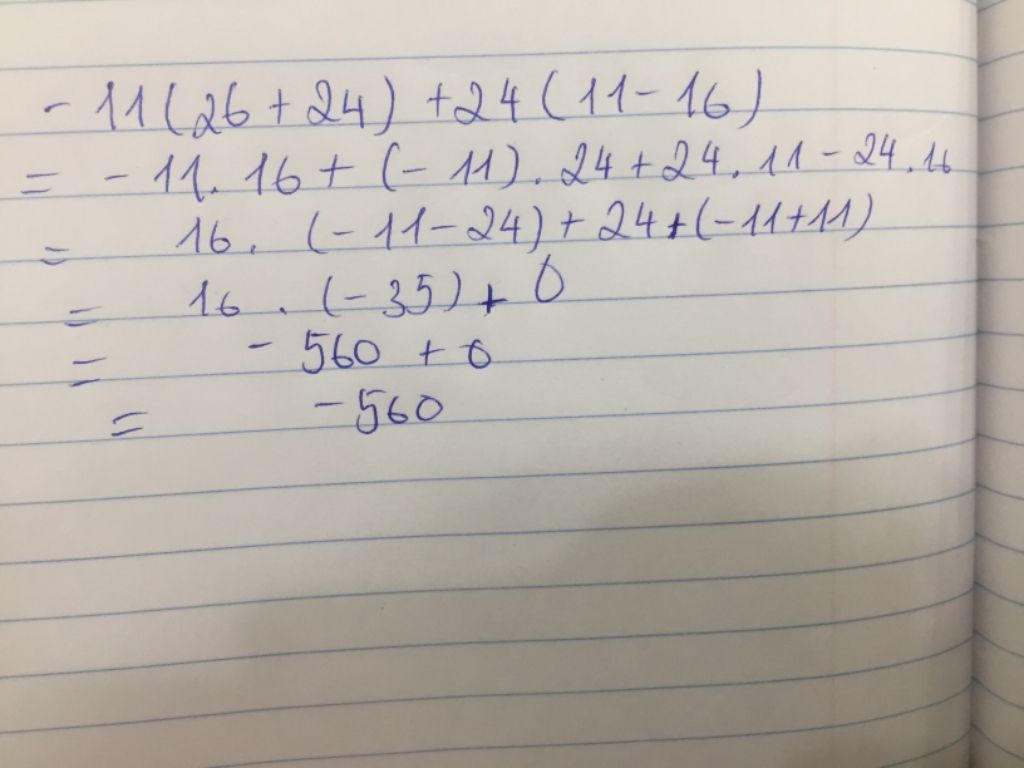 - 11(26+24) +24(11-16)
= - 11. 16 + (-11). 24 + 24. 11 - 24. 16
= 16. (-11-24) + 24+(-11+11)
= 16 . (-35) + 0
= - 560 + 0
= -560